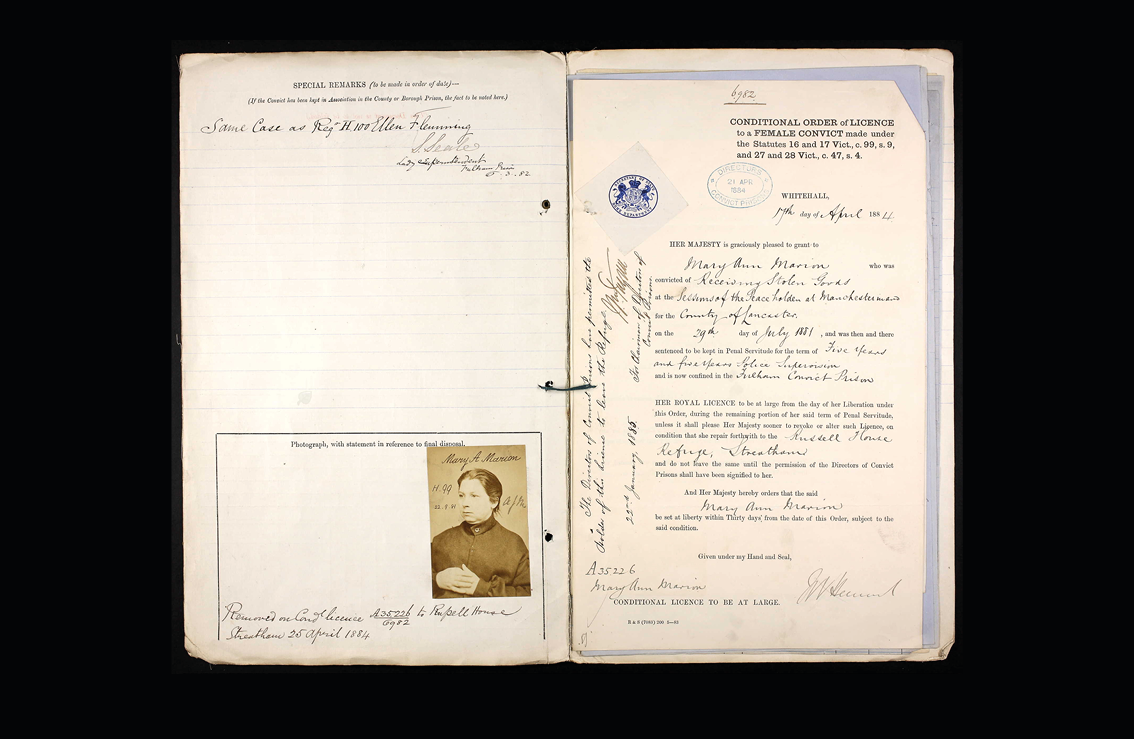 SPECIAL REMARKS (to be made in order of date)—
(If the Convict has been kept in Association in the County or Borough Prison, the fact to be noted here.)
Same Case as Regr H.100 Ellen Flemming
Lady Superintendent
Fulham Prison
3. 82
Photograph, with statement in reference to final disposal.
Mary A Marion
H. 99
A/M
Removed on Condl licence A35226 to Russell House
6982
Streatham 25 April 1884
6982
CONDITIONAL ORDER of LICENCE
to a FEMALE CONVICT made under
the Statutes 16 and 17 Vict., c. 99, s. 9,
and 27 and 28 Vict., c. 47, s. 4.
DIRECTORS
21 APR
1884
CONVICT PRISONS
WHITEHALL,
17th day of April 1884.
HER MAJESTY is graciously pleased to grant to
Mary Ann Marion who was
convicted of Receiving Stolen Goods
at the Sessions of the Peace holden at Manchester
for the County of Lancaster.
on the 29th day of July 1881, and was then and there
sentenced to be kept in Penal Servitude for the term of Five Years
and five years Police Supervision
and is now confined in the Fulham Convict Prison
HER ROYAL LICENCE to be at large from the day of her Liberation under
this Order, during the remaining portion of her said term of Penal Servitude,
unless it shall please Her Majesty sooner to revoke or alter such Licence, on
condition that she repair forthwith to the Russell House
Refuge, Streatham
and do not leave the same until the permission of the Directors of Convict
Prisons shall have been signified to her.
And Her Majesty hereby orders that the said
Mary Ann Marion
be set at liberty within Thirty days from the date of this Order, subject to the
said condition.
Given under my Hand and Seal,
A35226
Mary Ann Marion
CONDITIONAL LICENCE TO BE AT LARGE.
The Directors of Convict Prisons have permitted the
holder of this licence to leave the Refuge.
For Chairman of Directors of
Convict Prisons.
22nd January, 1885